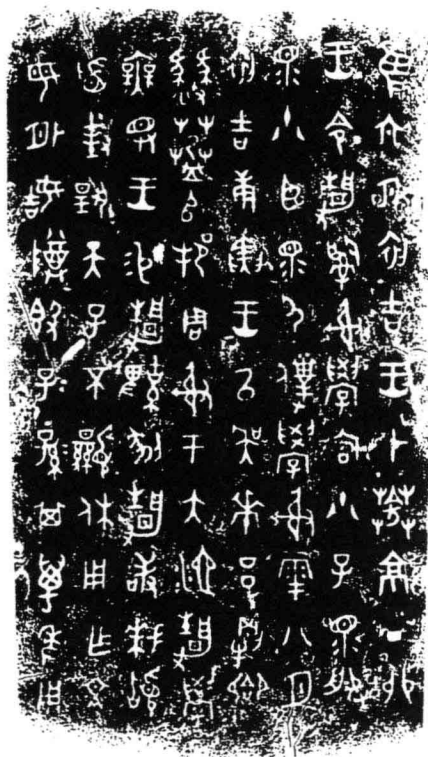 隹六月初吉王才𦯧京丁卯
王令靜𤔲射學宮小子眔服
眔小臣眔尸僕學射雩八月
初吉庚寅王以吳𠦪呂犅
豳𦽊𠂤邦周射于大池靜學
無斁王易靜鞞刻靜敢拜稽
首對揚天子不顯休用乍文
母外姞尊簋子子孫孫其萬年用